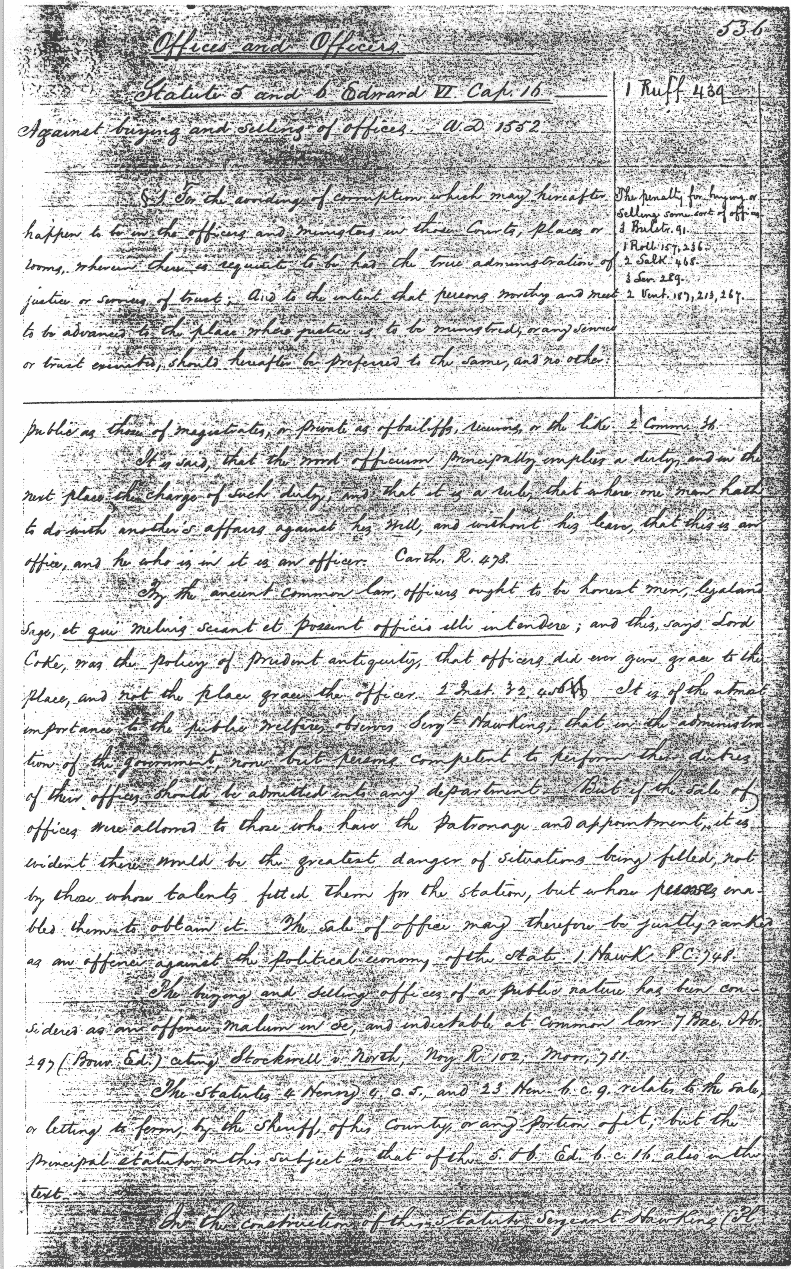 536
Offices and Officers
Statute 5 and 6 Edward VI Cap. 16
1 Ruff 439
Against buying and selling of offices. A.D. 1552
§1 For the avoiding of corruption which may hereafter
happen to be in the officers and ministers in those Courts, places or
rooms, wherein there is requisite to be had the true administration of
justice or services of trust; And to the intent that persons worthy and meet
to be advanced to the place where justice is to be ministred, or any service
or trust executed, should hereafter be preferred to the same, and no other:
The penalty for buying or
selling some sort of offices
3 Bulstr. 91.
1 Roll 157, 236.
2 Salk. 468.
3 Lev. 289.
2 Vent. 187, 213, 267.
public as those of magistrates, or private as of bailiffs, receivers, or the like 2 Comm 36
It is said, that the word officium principally implies a duty, and in the
next place the charge of such duty, and that it is a rule, that where one man hath
to do with another's affairs against his will, and without his leave, that this is an
office, and he who is in it is an officer. Carth. R. 478.
By the ancient common law, officers ought to be honest men, legal and
sage, et qui melius sciant et possint officio illi intendere; and this, says Lord
Coke, was the policy of prudent antiquity, that officers did ever give grace to the
place, and not the place grace the officer. 2 Inst. 32 456 It is of the utmost
importance to the public welfare, observes Serg't Hawkins, that in the administra
tion of the government, none but persons competent to perform their duties
of their offices should be admitted into any department. But if the sale of
offices were allowed to those who have the patronage and appointment, it is
evident there would be the greatest danger of situations being filled, not
by those whose talents fitted them for the station, but whose purses ena-
bled them to obtain it. The sale of office may therefore be justly ranked
as an offence against the political economy of the state. 1 Hawk P.C. 748.
The buying and selling offices of a public nature has been con-
sidered as an offence malum in se, and indictable at common law. 7 Bac. Abr.
297 (Bouv. Ed.) citing Stockwell v. North, Noy R. 102, Moor, 781.
The Statutes 4 Henry 4 c. 5., and 23 Hen. 6. c. 9. relates to the sale,
or letting to ferm, by the sheriff, of his County, or any portion of it; but the
principal statute on this subject is that of the 5. & 6. Ed. 6. c. 16. also in the
text.
In the construction of this statute Sergeant Hawkins (Pl.